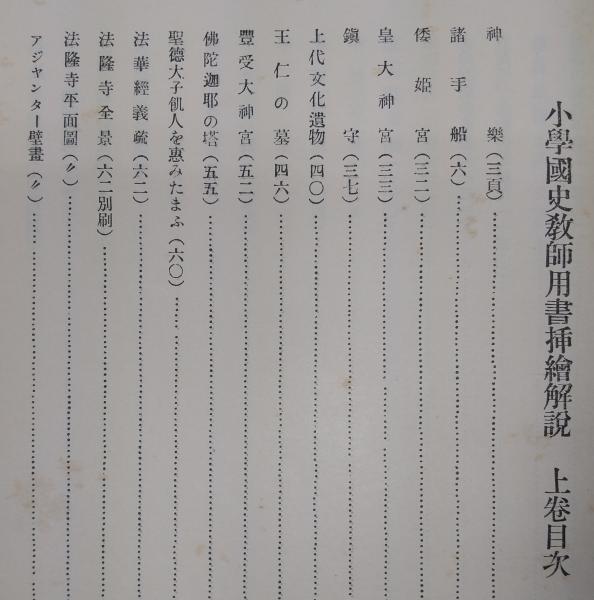 小學國史敎師用書揷繪解說　上卷目次
神樂(三頁)
諸手船(六)
倭姬宮(三二)
皇大神宮(三三)
鎭守(三七)
上代文化遺物(四〇)
王仁の墓(四六)
豐受大神宮(五二)
佛陀迦耶の塔(五五)
聖德太子飢人を惠みたまふ(六〇)
法華經義疏(六二)
法隆寺全景(六二別刷)
法隆寺平面圖(〃)
アジャンター壁畫(〃)